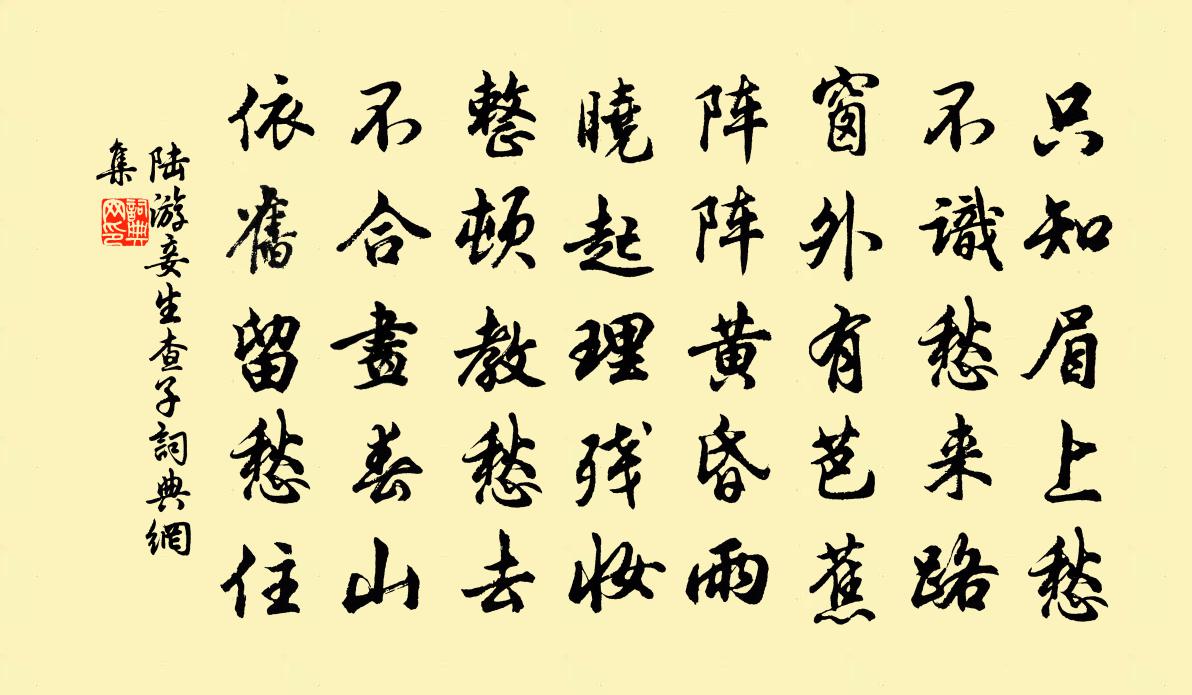 只知眉上愁
不識愁来路
窗外有芭蕉
阵阵黄昏雨
曉起理残妆
整頓教愁去
不合畫春山
依舊留愁住
陆游妾生查子詞典網
集
詞典
网印